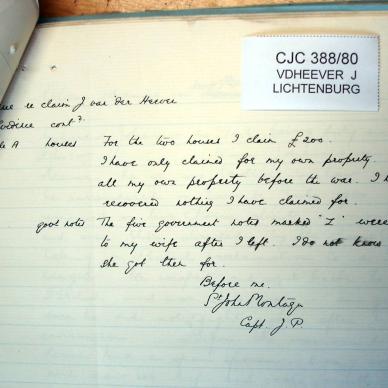 CJC 388/80
VDHEEVER J
LICHTENBURG
re claim J van der Heever
Evidence cont?
A houses For the two houses I claim £200.
I have only claimed for my own property.
all my own property before the war. I h
recovered nothing I have claimed for.
govt notes The five government notes marked "Z" were
to my wife after I left. I do not know
she got them for.
Before me.
St John Montagu
Capt. J. P.